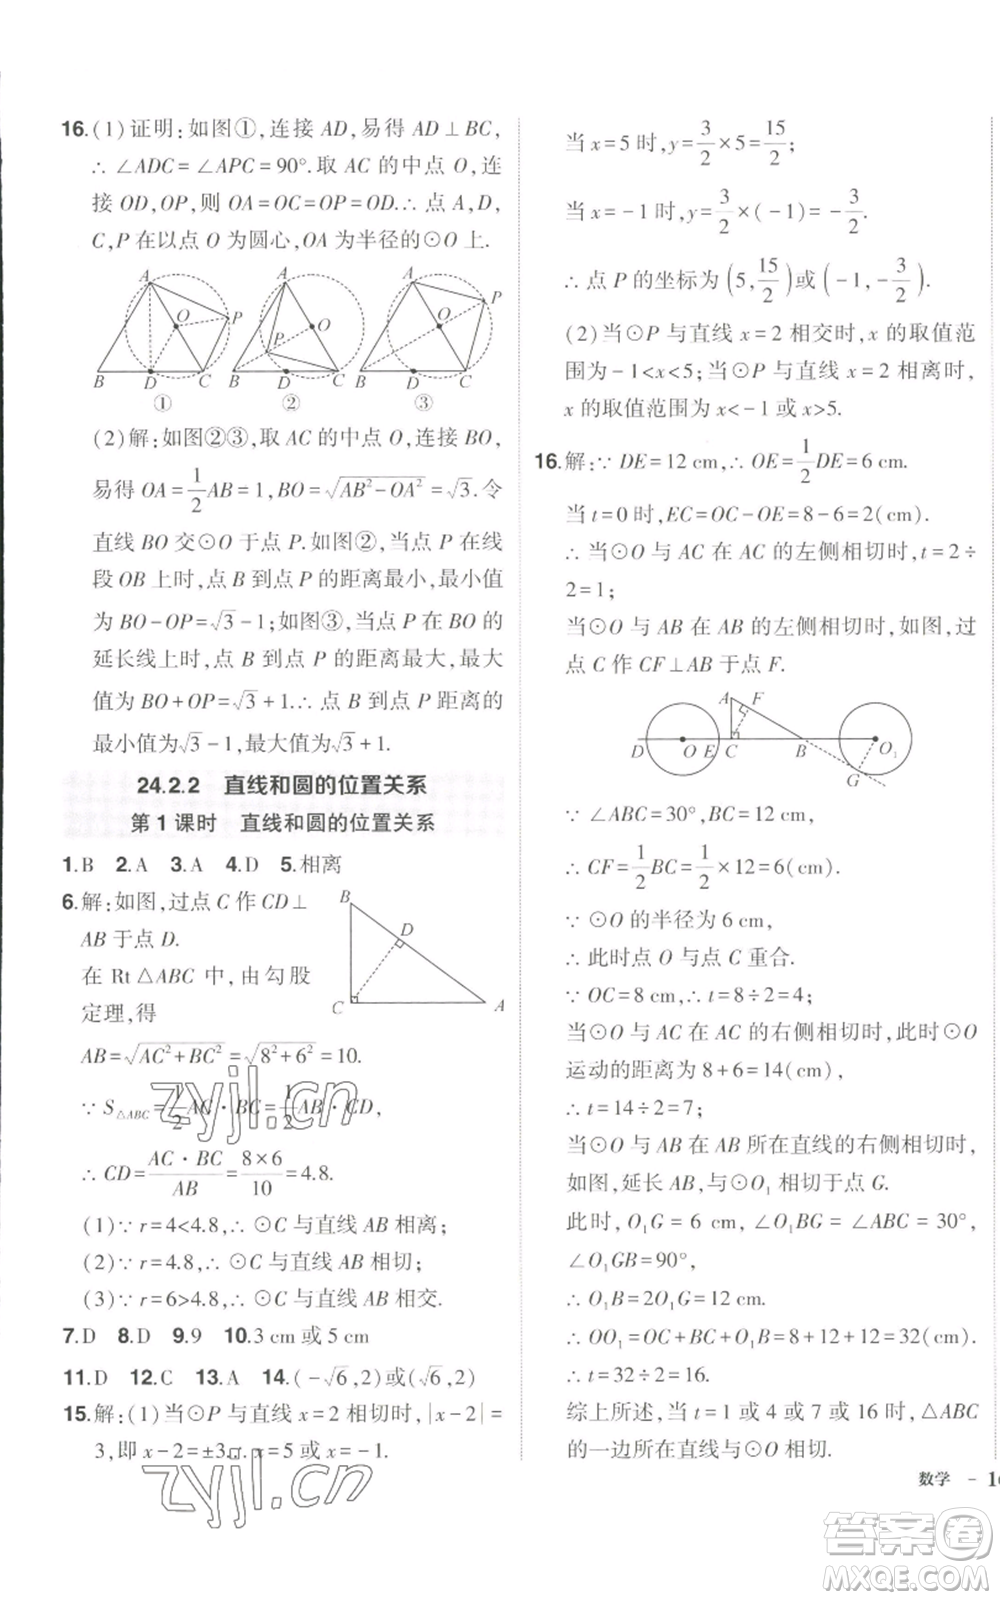 16.(1)证明:如图①,连接 AD,易得 AD⊥BC,
∴∠ADC=∠APC=90°.取 AC 的中点 O,连
接 OD,OP,则 OA=OC=OP=OD.∴点 A,D,
C,P 在以点 O 为圆心,OA 为半径的⊙O 上.
A O P B D C ①
A O P B D C ②
A P O B D C ③
(2)解:如图②③,取 AC 的中点 O,连接 BO,
易得 OA=1/2AB=1,BO=√(AB²-OA²)=√3.令
直线 BO 交⊙O 于点 P.如图②,当点 P 在线
段 OB 上时,点 B 到点 P 的距离最小,最小值
为 BO-OP=√3-1;如图③,当点 P 在 BO 的
延长线上时,点 B 到点 P 的距离最大,最大
值为 BO+OP=√3+1.∴点 B 到点 P 距离的
最小值为√3-1,最大值为√3+1.
24.2.2 直线和圆的位置关系
第 1 课时 直线和圆的位置关系
1.B 2.A 3.A 4.D 5.相离
6.解:如图,过点 C 作 CD⊥
AB 于点 D.
在 Rt△ABC 中,由勾股
定理,得
B D C A
AB=√(AC²+BC²)=√(8²+6²)=10.
∵S△ABC=1/2AC·BC=1/2AB·CD,
∴CD=(AC·BC)/AB=(8×6)/10=4.8.
(1)∵r=4<4.8,∴⊙C 与直线 AB 相离;
(2)∵r=4.8,∴⊙C 与直线 AB 相切;
(3)∵r=6>4.8,∴⊙C 与直线 AB 相交.
7.D 8.D 9.9 10.3 cm 或 5 cm
11.D 12.C 13.A 14.(-√6,2)或(√6,2)
15.解:(1)当⊙P 与直线 x=2 相切时,|x-2|=
3,即 x-2=±3.∴x=5 或 x=-1.
当 x=5 时,y=3/2×5=15/2;
当 x=-1 时,y=3/2×(-1)=-3/2.
∴点 P 的坐标为(5,15/2)或(-1,-3/2).
(2)当⊙P 与直线 x=2 相交时,x 的取值范
围为-1<x<5;当⊙P 与直线 x=2 相离时,
x 的取值范围为 x<-1 或 x>5.
16.解:∵DE=12 cm,∴OE=1/2DE=6 cm.
当 t=0 时,EC=OC-OE=8-6=2(cm).
∴当⊙O 与 AC 在 AC 的左侧相切时,t=2÷
2=1;
当⊙O 与 AB 在 AB 的左侧相切时,如图,过
点 C 作 CF⊥AB 于点 F.
A F D O E C B O₁ G
∵∠ABC=30°,BC=12 cm,
∴CF=1/2BC=1/2×12=6(cm).
∵⊙O 的半径为 6 cm,
∴此时点 O 与点 C 重合.
∵OC=8 cm,∴t=8÷2=4;
当⊙O 与 AC 在 AC 的右侧相切时,此时⊙O
运动的距离为 8+6=14(cm),
∴t=14÷2=7;
当⊙O 与 AB 在 AB 所在直线的右侧相切时,
如图,延长 AB,与⊙O₁ 相切于点 G.
此时,O₁G=6 cm,∠O₁BG=∠ABC=30°,
∠O₁GB=90°,
∴O₁B=2O₁G=12 cm.
∴OO₁=OC+BC+O₁B=8+12+12=32(cm).
∴t=32÷2=16.
综上所述,当 t=1 或 4 或 7 或 16 时,△ABC
的一边所在直线与⊙O 相切.
数学 - 1
zyjl.cn
zyjl.cn
答案卷
MXQE.COM